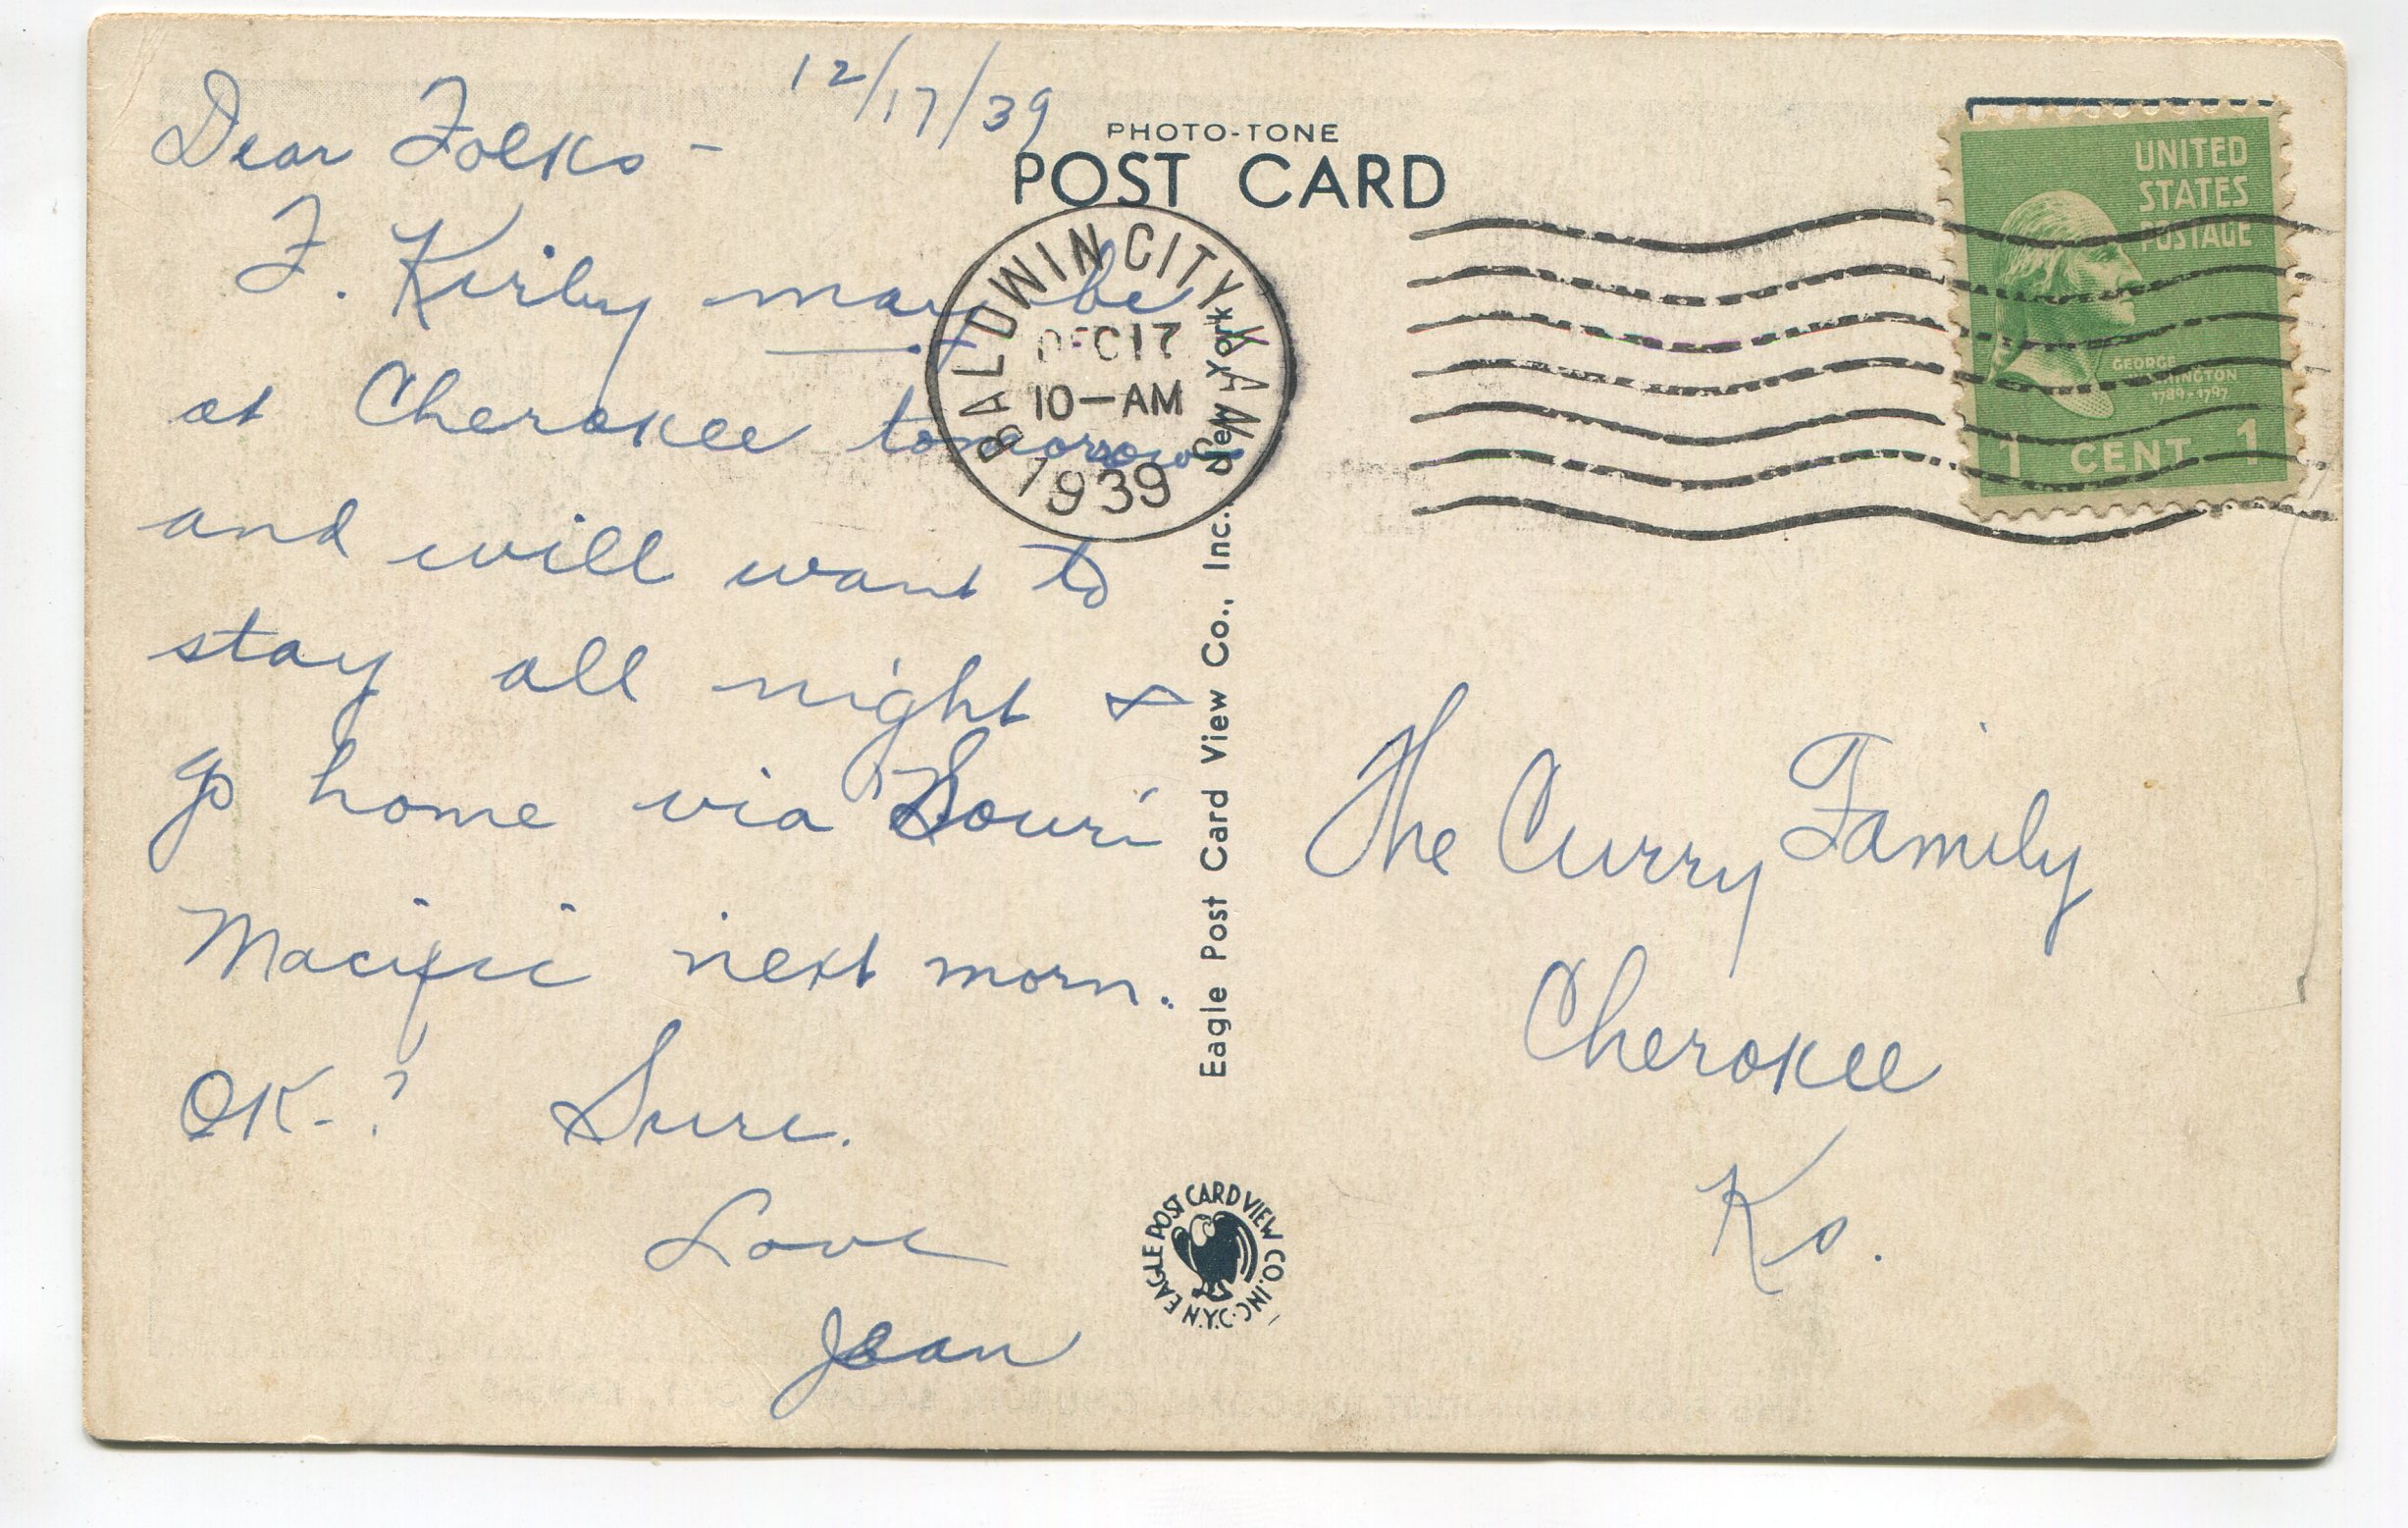 12/17/39
Dear Folks -
F. Kirby may be
at Cherokee tomorrow
and will want to
stay all night &
go home via Souri
Macific next morn.
OK-? Sure.
Love
Jean
PHOTO-TONE
POST CARD
BALDWIN CITY KANS
DEC 17
10-AM
1939
Eagle Post Card View Co., Inc. New York
EAGLE POST CARD VIEW CO. INC. N.Y.C.
UNITED
STATES
POSTAGE
GEORGE
WASHINGTON
1789-1797
1 CENT 1
The Curry Family
Cherokee
Ks.